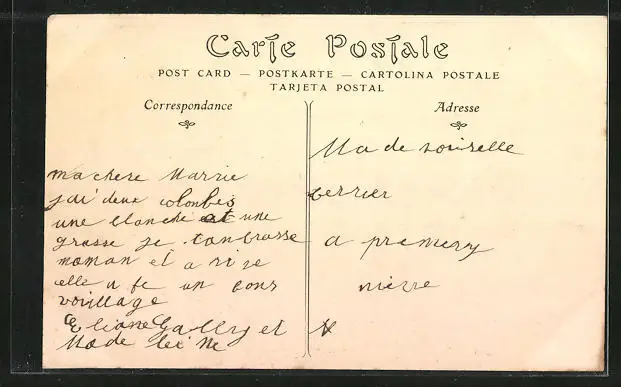 Carte Postale
POST CARD — POSTKARTE — CARTOLINA POSTALE
TARJETA POSTAL
Correspondance
Adresse
ma chere Marrie
jai deux colonbes
une blanche et une
grosse je tanbrasse
moman et
elle a fe un bons
voiillage
Eliane Gally et
Ma de lei ne
Ma de moiselle
berrier
a premery
nievre